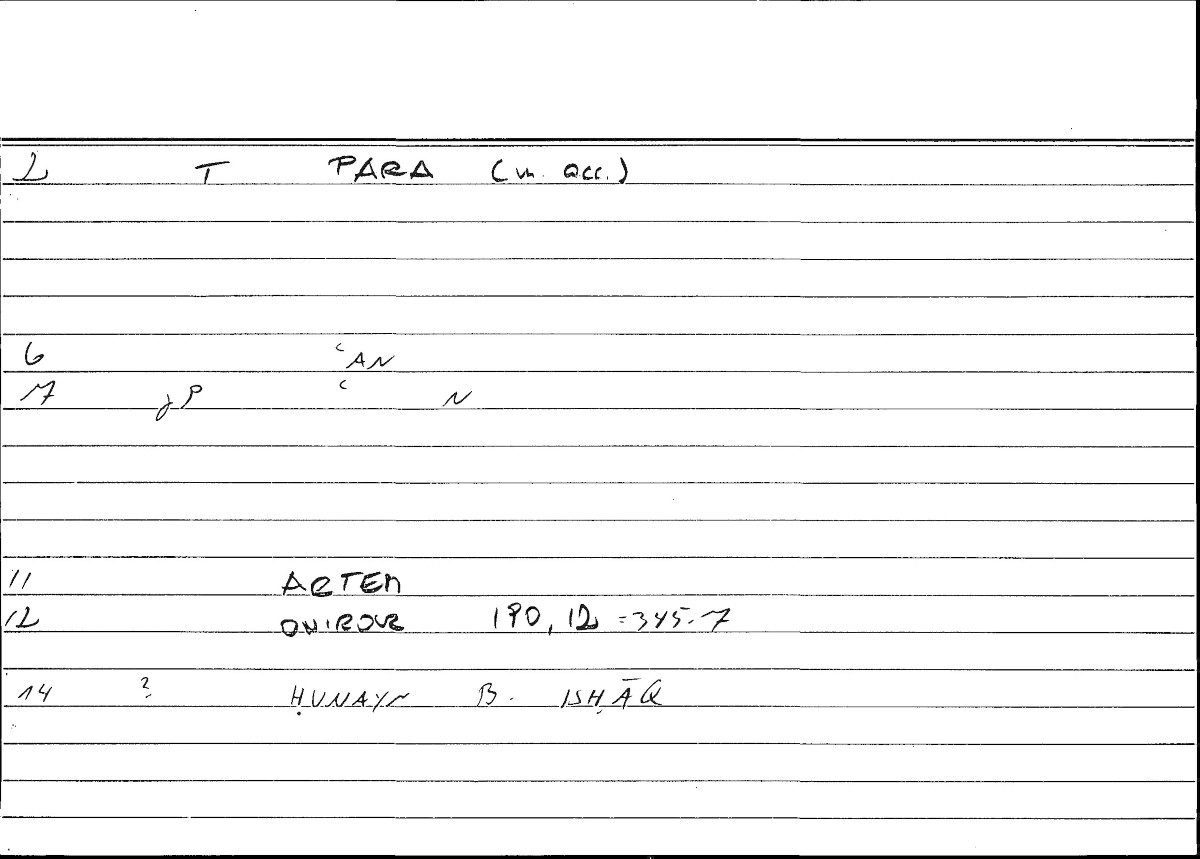 2 T PARA (m. acc.)
6 ʿAN
7 jP ʿ N
11 ARTEM
12 ONIROCR 190, 12 =345.7
14 ? ḤUNAYN B. ISḤĀQ